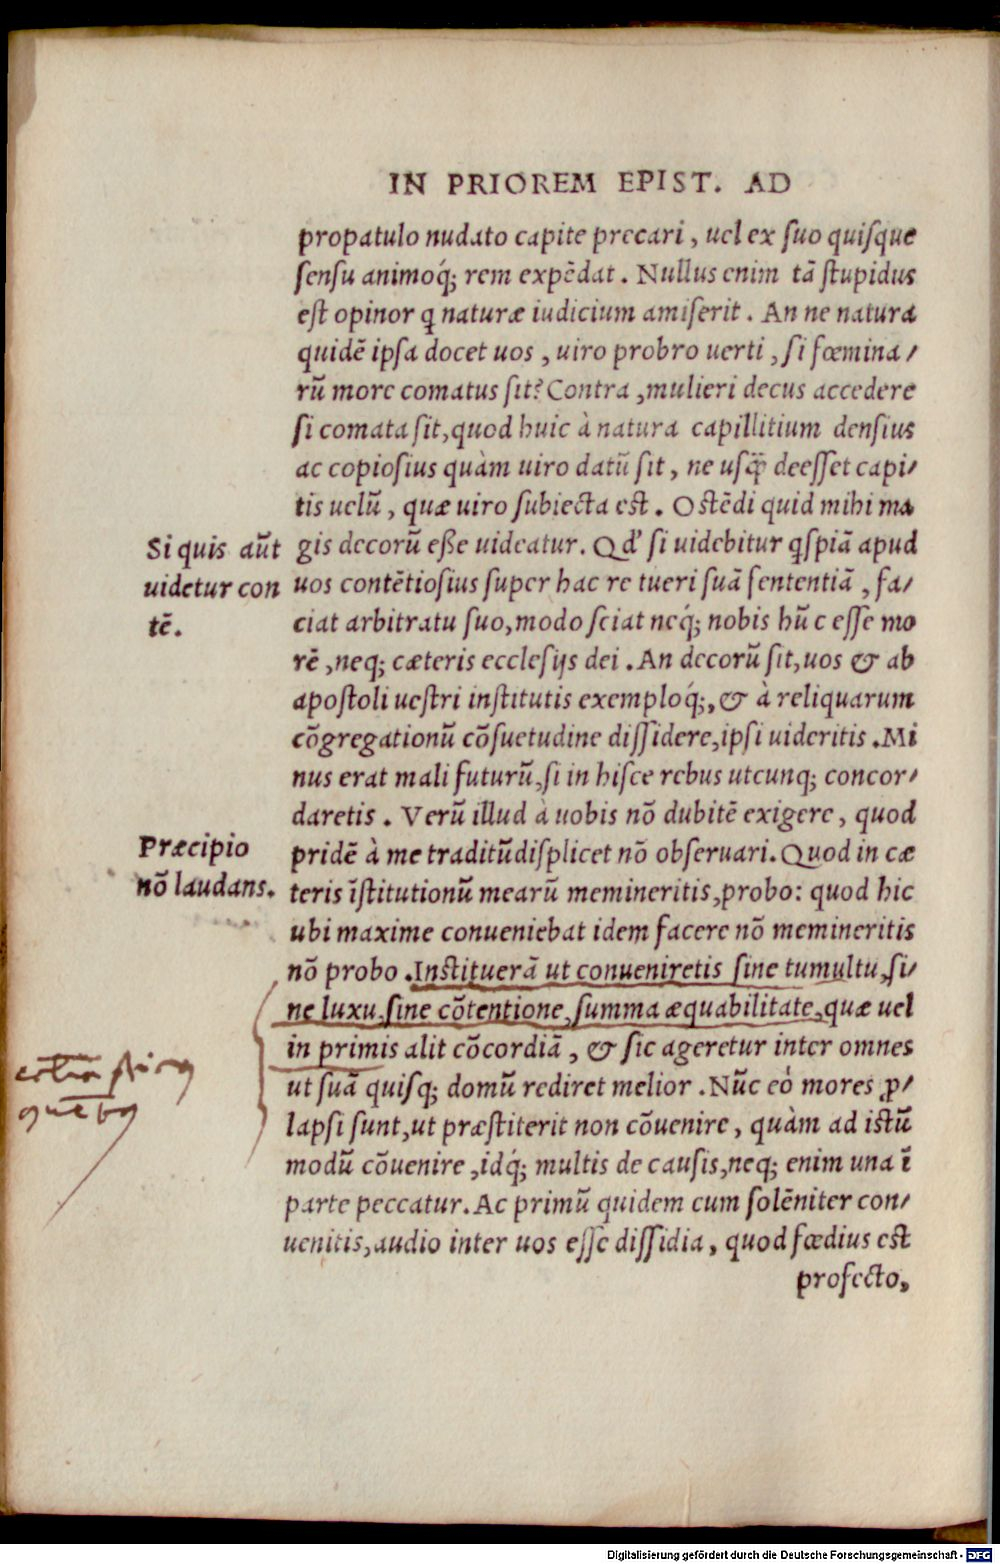 IN PRIOREM EPIST. AD
propatulo nudato capite precari, uel ex suo quisque
sensu animoq́; rem expēdat. Nullus enim tā stupidus
est opinor q naturæ iudicium amiserit. An ne natura
quidē ipsa docet uos, uiro probro uerti, si fœmina/
rū more comatus sit? Contra, mulieri decus accedere
si comata sit, quod huic à natura capillitium densius
ac copiosius quàm uiro datū sit, ne usq̃ deesset capi/
tis uelū, quæ uiro subiecta est. Ostēdi quid mihi ma
Si quis aūt
uidetur con
tē.
gis decorū esse uideatur. Qd' si uidebitur qspiā apud
uos contētiosius super hac re tueri suā sententiā, fa/
ciat arbitratu suo, modo sciat neq́; nobis hūc esse mo
rē, neq; cæteris ecclesijs dei. An decorū sit, uos & ab
apostoli uestri institutis exemploq́;, & à reliquarum
cōgregationū cōsuetudine dissidere, ipsi uideritis. Mi
nus erat mali futurū, si in hisce rebus utcunq; concor/
daretis. Verū illud à uobis nō dubitē exigere, quod
Præcipio
nō laudans.
pridē à me traditū displicet nō obseruari. Quod in cæ
teris īstitutionū mearū memineritis, probo: quod hic
ubi maxime conueniebat idem facere nō memineritis
nō probo. Instituerā ut conueniretis sine tumultu, si/
ne luxu, sine cōtentione, summa æquabilitate, quæ uel
in primis alit cōcordiā, & sic ageretur inter omnes
ut suā quisq; domū rediret melior. Nūc eó mores ꝓ/
lapsi sunt, ut præstiterit non cōuenire, quàm ad istū
modū cōuenire, idq́; multis de causis, neq; enim una ī
parte peccatur. Ac primū quidem cum solēniter con/
uenitis, audio inter uos esse dissidia, quod fœdius est
profecto,
Digitalisierung gefördert durch die Deutsche Forschungsgemeinschaft - DFG